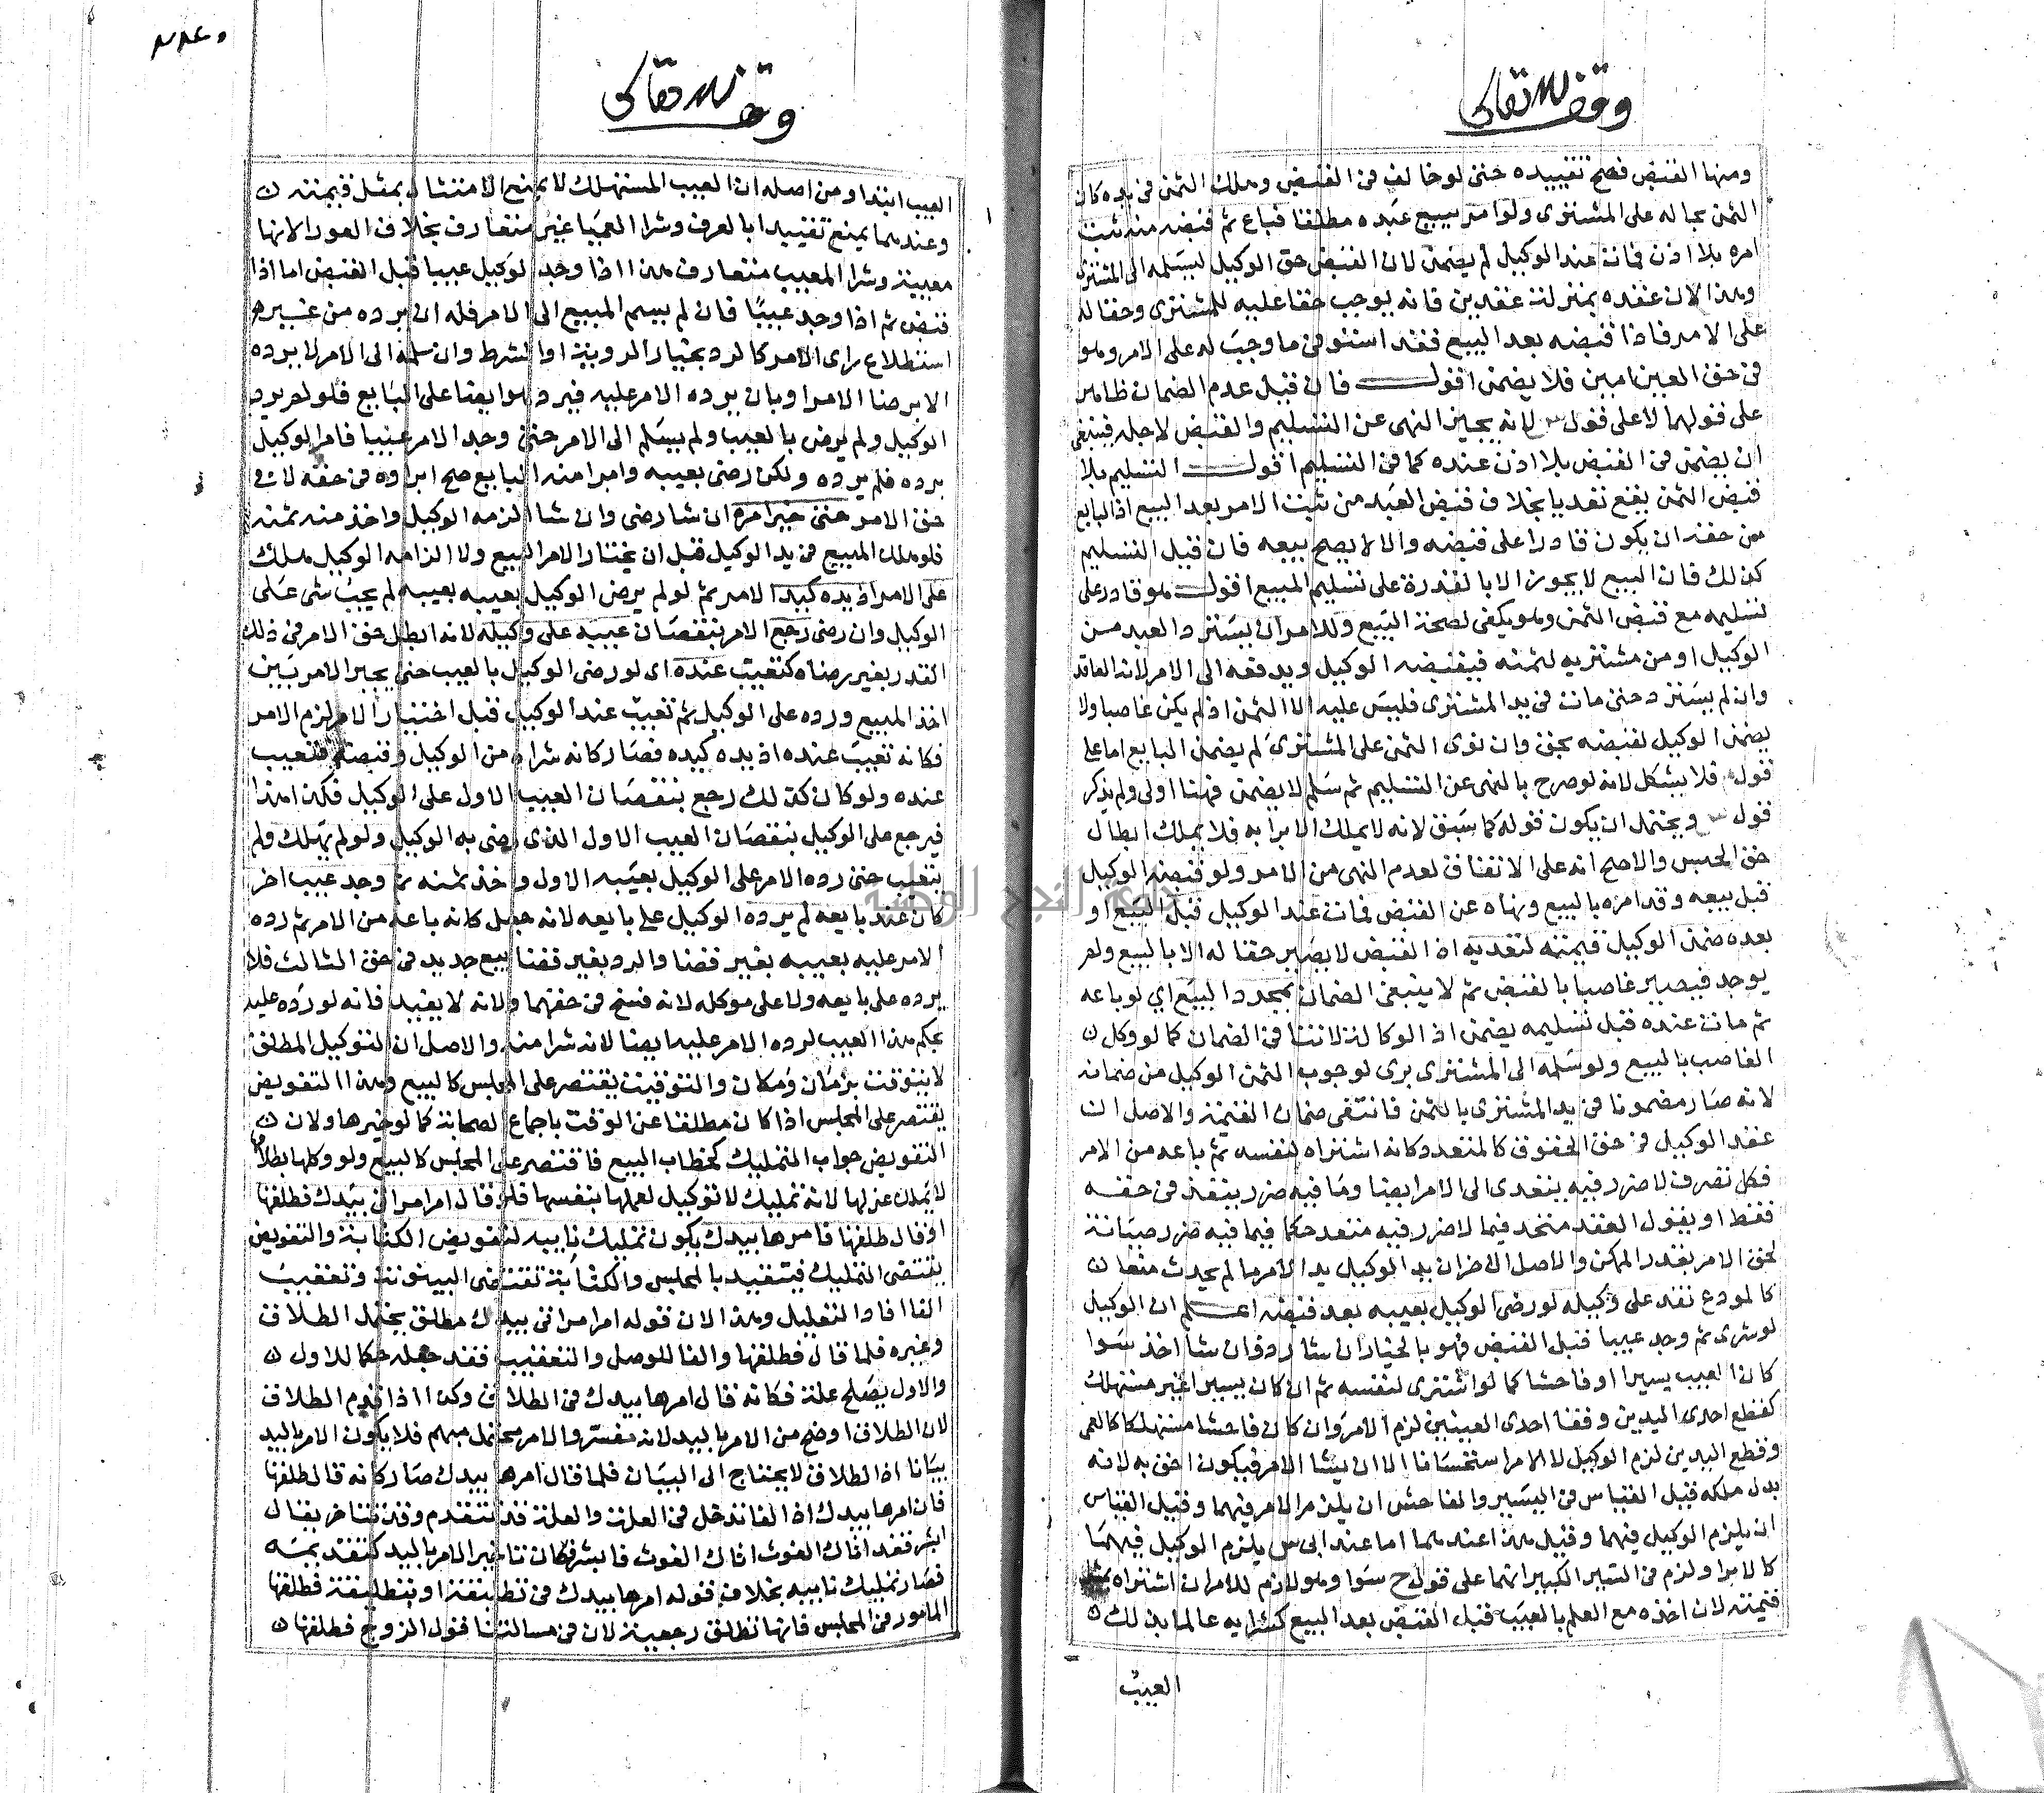 وقف لله تعالى
ومنها القبض فصح تقييده حتى لو خالف في القبض وهلك الثمن في يده كان
الثمن بحاله على المشترى ولو امر ببيع عبده مطلقا فباع ثم قبضه من بيت
امره بلا اذن فمات عند الوكيل لم يضمن لان القبض حق الوكيل ليسلمه الى المشترى
وهذا لان عقده بمنزلة عقدين فانه يوجب حقا عليه للمشترى وحقا له
على الامر فاذا قبضه بعد البيع فقد استوفى ما وجب له على الامر وهو
في حق العين امين فلا يضمن اقول فان قيل عدم الضمان ظاهر
على قولهما لا على قول س لانه يجيز النهى عن التسليم والقبض لاجله فينبغى
ان يضمن في القبض بلا اذن عنده كما في التسليم اقول التسليم بلا
قبض الثمن يقع تعديا بخلاف قبض العبد من بيت الامر بعد البيع اذ البايع
من حقه ان يكون قادرا على قبضه والا لا يصح بيعه فان قيل التسليم
كذلك فان البيع لا يجوز الا بالقدرة على تسليم المبيع اقول هو قادر على
تسليمه مع قبض الثمن وهو يكفى لصحة البيع وللامر ان يسترد العبد من
الوكيل او من مشتريه لثمنه فيقبضه الوكيل ويدفعه الى الامر لانه العاقد
وان لم يسترد حتى مات في يد المشترى فليس عليه الا الثمن اذ لم يكن غاصبا ولا
يضمن الوكيل لقبضه بحق وان توى الثمن على المشترى لم يضمن البايع اما على
قول فلا يشكل لانه لو صرح بالنهى عن التسليم ثم سلم لا يضمن فهنا اولى ولم يذكر
قول س ويحتمل ان يكون قوله كما سبق لانه لا يملك الابرا به فلا يملك ابطال
حق الحبس والاصح انه على الاتفاق لعدم النهى من الامر ولو قبضه الوكيل
قبل بيعه وقد امره بالبيع ونهاه عن القبض فمات عند الوكيل قبل البيع او
بعده ضمن الوكيل قيمته لتعديه اذ القبض لا يصير حقا له الا بالبيع ولم
يوجد فيصير غاصبا بالقبض ثم لا ينبغى الضمان بمجرد البيع اي لو باعه
ثم مات عنده قبل تسليمه يضمن اذ الوكالة لا تنافى الضمان كما لو وكل
الغاصب بالبيع ولو سلمه الى المشترى برى لوجوب الثمن الوكيل من ضمانه
لانه صار مضمونا في يد المشترى بالثمن فانتفى ضمان القيمة والاصل ان
عقد الوكيل في حق الحقوق كالمتعدد وكانه اشتراه لنفسه ثم باعه من الامر
فكل تصرف لا ضرر فيه يتعدى الى الامر ايضا وما فيه ضرر ينفذ في حقه
فقط او يقول العقد متحد فيما لا ضرر فيه متعدد حكما فيما فيه ضرر صيانة
لحق الامر بقدر الممكن والاصل الاخر ان يد الوكيل يد الامر ما لم يحدث منعا
كالمودع نفذ على وكيله لو رضى الوكيل بعيبه بعد قبضه اعلم ان الوكيل
لو شرى ثم وجد عيبا قبل القبض فهو بالخيار ان شا رد وان شا اخذ سوا
كان العيب يسيرا او فاحشا كما لو اشترى لنفسه ثم ان كان يسيرا غير مستهلك
كقطع احدى اليدين وفقا احدى العينين لزم الامر وان كان فاحشا مستهلكا كالعمى
وقطع اليدين لزم الوكيل لا الامر استحسانا الا ان يشا الامر فيكون احق به لانه
بدل ملكه قيل القياس في اليسير والفاحش ان يلزم الامر فيهما وقيل القياس
ان يلزم الوكيل فيهما وقيل هذا عندهما اما عند ابى س يلزم الوكيل فيهما
كالامر او لزم في اليسير الكبير انهما على قول ح سوا وهو لازم للامر ان اشتراه بمثل
قيمته لان اخذه مع العلم بالعيب قبل القبض بعد البيع كشرايه عالما بذلك
العيب
وقف لله تعالى
العيب ابتدا ومن اصله ان العيب المستهلك لا يمنع الامتثال بمثل قيمته
وعندهما يمنع تقييدا بالعرف وشرا العميا غير متعارف بخلاف العورا لانها
معيبة وشرا المعيب متعارف هذا اذا وجد الوكيل عيبا قبل القبض اما اذا
قبض ثم اذا وجد عيبا فان لم يسلم المبيع الى الامر فله ان يرده من غير
استطلاع راى الامر كالرد بخيار الروية او الشرط وان سلمه الى الامر لا يرده
الا برضا الامر او بان يرده الامر عليه فيرد هو ايضا على البايع فلو لم يرد
الوكيل ولم يرض بالعيب ولم يسلم الى الامر حتى وجد الامر عيبا فامر الوكيل
برده فلم يرده ولكن رضى بعيبه وابرا منه البايع صح ابراوه في حقه لا في
حق الامر حتى خير امره ان شا رضى وان شا الزمه الوكيل واخذ منه ثمنه
فلو هلك المبيع في يد الوكيل قبل ان يختار الامر البيع ولا الزامه الوكيل هلك
على الامر اذ يده كيد الامر ثم لو لم يرض الوكيل بعيبه بعيبه لم يجب شى على
الوكيل وان رضى رجع الامر بنقصان عيبه على وكيله لانه ابطل حق الامر في ذلك
القدر بغير رضاه كتعيب عنده اى لو رضى الوكيل بالعيب حتى يخير الامر بين
اخذ المبيع ورده على الوكيل ثم تعيب عند الوكيل قبل اختيار الامر لزم الامر
فكانه تعيب عنده اذ يده كيده فصار كانه شراه من الوكيل وقبضه فتعيب
عنده ولو كان كذلك رجع بنقصان العيب الاول على الوكيل فكذا هذا
فيرجع على الوكيل بنقصان العيب الاول الذى رضى به الوكيل ولو لم يهلك ولم
يتعيب حتى رده الامر على الوكيل بعيبه الاول واخذ ثمنه ثم وجد عيب اخر
كان عند بايعه لم يرده الوكيل على بايعه لانه جعل كانه باعه من الامر ثم رده
الامر عليه بعيبه بغير قضا والرد بغير قضا بيع جديد في حق الثالث فلا
يرده على بايعه ولا على موكله لانه فسخ في حقهما ولانه لا يفيد فانه لو رده عليه
بحكم هذا العيب لرده الامر عليه ايضا لانه شرا منه والاصل ان التوكيل المطلق
لا يتوقت بزمان ومكان والتوقيت يقتصر على المجلس كالبيع وهذا التفويض
يقتصر على المجلس اذا كان مطلقا عن الوقت باجماع الصحابة كما لو خيرها ولان
التفويض جواب التمليك كخطاب البيع فاقتصر على المجلس كالبيع ولو وكلها بطلاق
لا يملك عزلها لانه تمليك لا توكيل لعملها بنفسها فلو قال امر امراتى بيدك فطلقها
او قال طلقها فامرها بيدك يكون تمليك نايبه لتفويض الكناية والتفويض
يقتضى التمليك فيتقيد بالمجلس والكناية تقتضى البينونة وتعقيب
الفا افاد التعليل وهذا لان قوله امر امراتى بيدك مطلق يحتمل الطلاق
وغيره فلما قال فطلقها والفا للوصل والتعقيب فقد جعله حكما للاول
والاول يصلح علة فكانه قال امرها بيدك في الطلاق وكذا اذا قدم الطلاق
لان الطلاق اوضح من الامر باليد لانه مفسر والامر محتمل مبهم فلا يكون الامر باليد
بيانا اذ الطلاق لا يحتاج الى البيان فلما قال امرها بيدك صار كانه قال طلقها
فان امرها بيدك اذ الفا تدخل في العلة والعلة قد تتقدم وقد تتاخر يقال
ابشر فقد اتاك الغوث اتاك الغوث فابشر فكان تاخير الامر باليد كتقديمه
فصار تمليك نايبه بخلاف قوله امرها بيدك في تطليقة او بتطليقة فطلقها
المامور في المجلس فانها تطلق رجعية لان في مسالتنا قول الزوج فطلقها